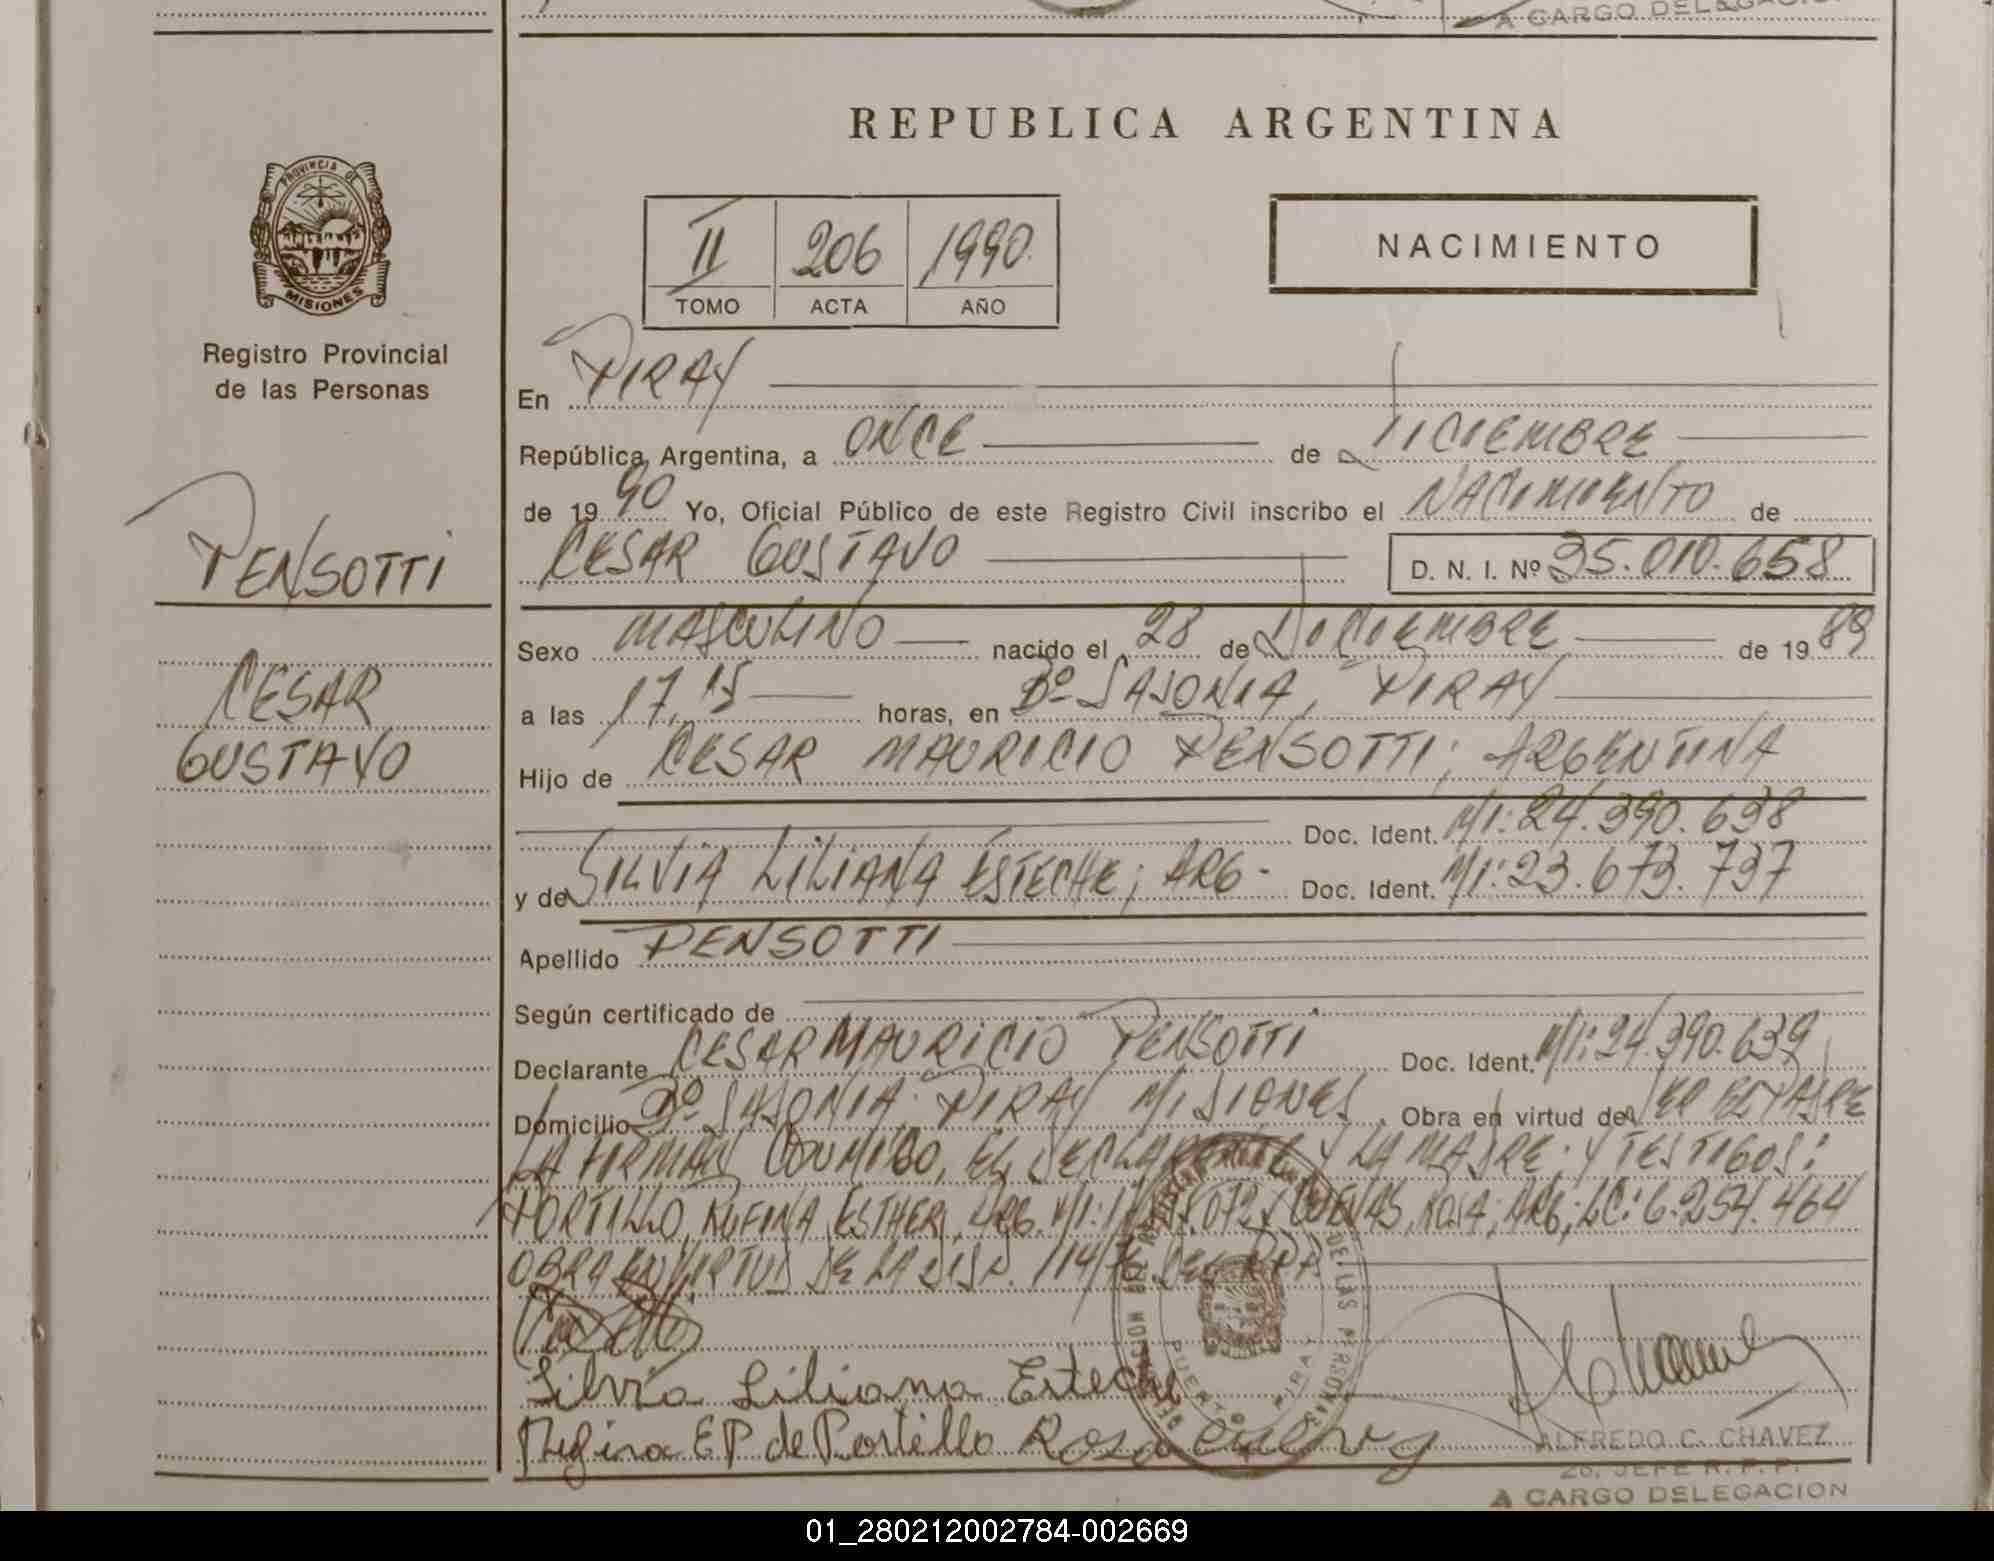 A CARGO DELEGACION
REPUBLICA ARGENTINA
PROVINCIA DE
MISIONES
II 206 1990
TOMO ACTA AÑO
NACIMIENTO
Registro Provincial
de las Personas
PENSOTTI
CESAR
GUSTAVO
En PIRAY
República Argentina, a ONCE de DICIEMBRE
de 19 90 Yo, Oficial Público de este Registro Civil inscribo el NACIMIENTO de
CESAR GUSTAVO D. N. I. Nº 35.010.658
Sexo MASCULINO nacido el 28 de DICIEMBRE de 19 89
a las 17,15 horas, en Bº SAJONIA, PIRAY
Hijo de CESAR MAURICIO PENSOTTI; ARGENTINA
Doc. Ident. M/I: 24.390.638
y de SILVIA LILIANA ESTECHE; ARG- Doc. Ident. M/I: 23.673.737
Apellido PENSOTTI
Según certificado de
Declarante CESAR MAURICIO PENSOTTI Doc. Ident. M/I: 24.390.639
Domicilio Bº SAJONIA. PIRAY MISIONES Obra en virtud de SER EL PADRE
LA FIRMAN CONMIGO, EL DECLARANTE Y LA MADRE; Y TESTIGOS:
PORTILLO, RUFINA ESTHER, ARG. M/I: Y CUEVAS, ROSA; ARG; LC: 6.254.464
OBRA EN VIRTUD DE LA DISP. 114/ DEL RPP
DE LAS PERSONAS
PUERTO PIRAY
Silvia Liliana Esteche
Rufina E P de Portillo Rosa Cuevas
ALFREDO C. CHAVEZ
2o. JEFE R. P. P.
A CARGO DELEGACION
01_280212002784-002669